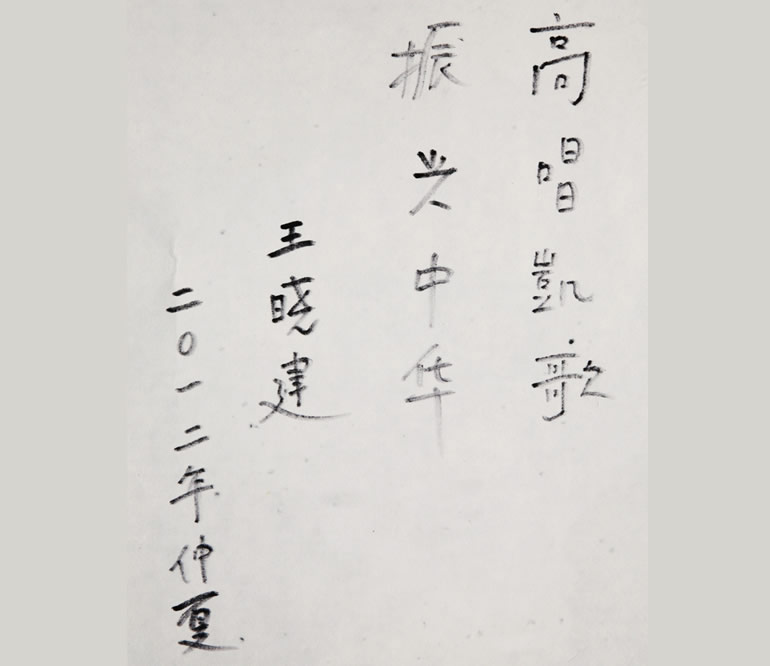 高唱凱歌
振兴中华
王晓建
二〇一二年仲夏